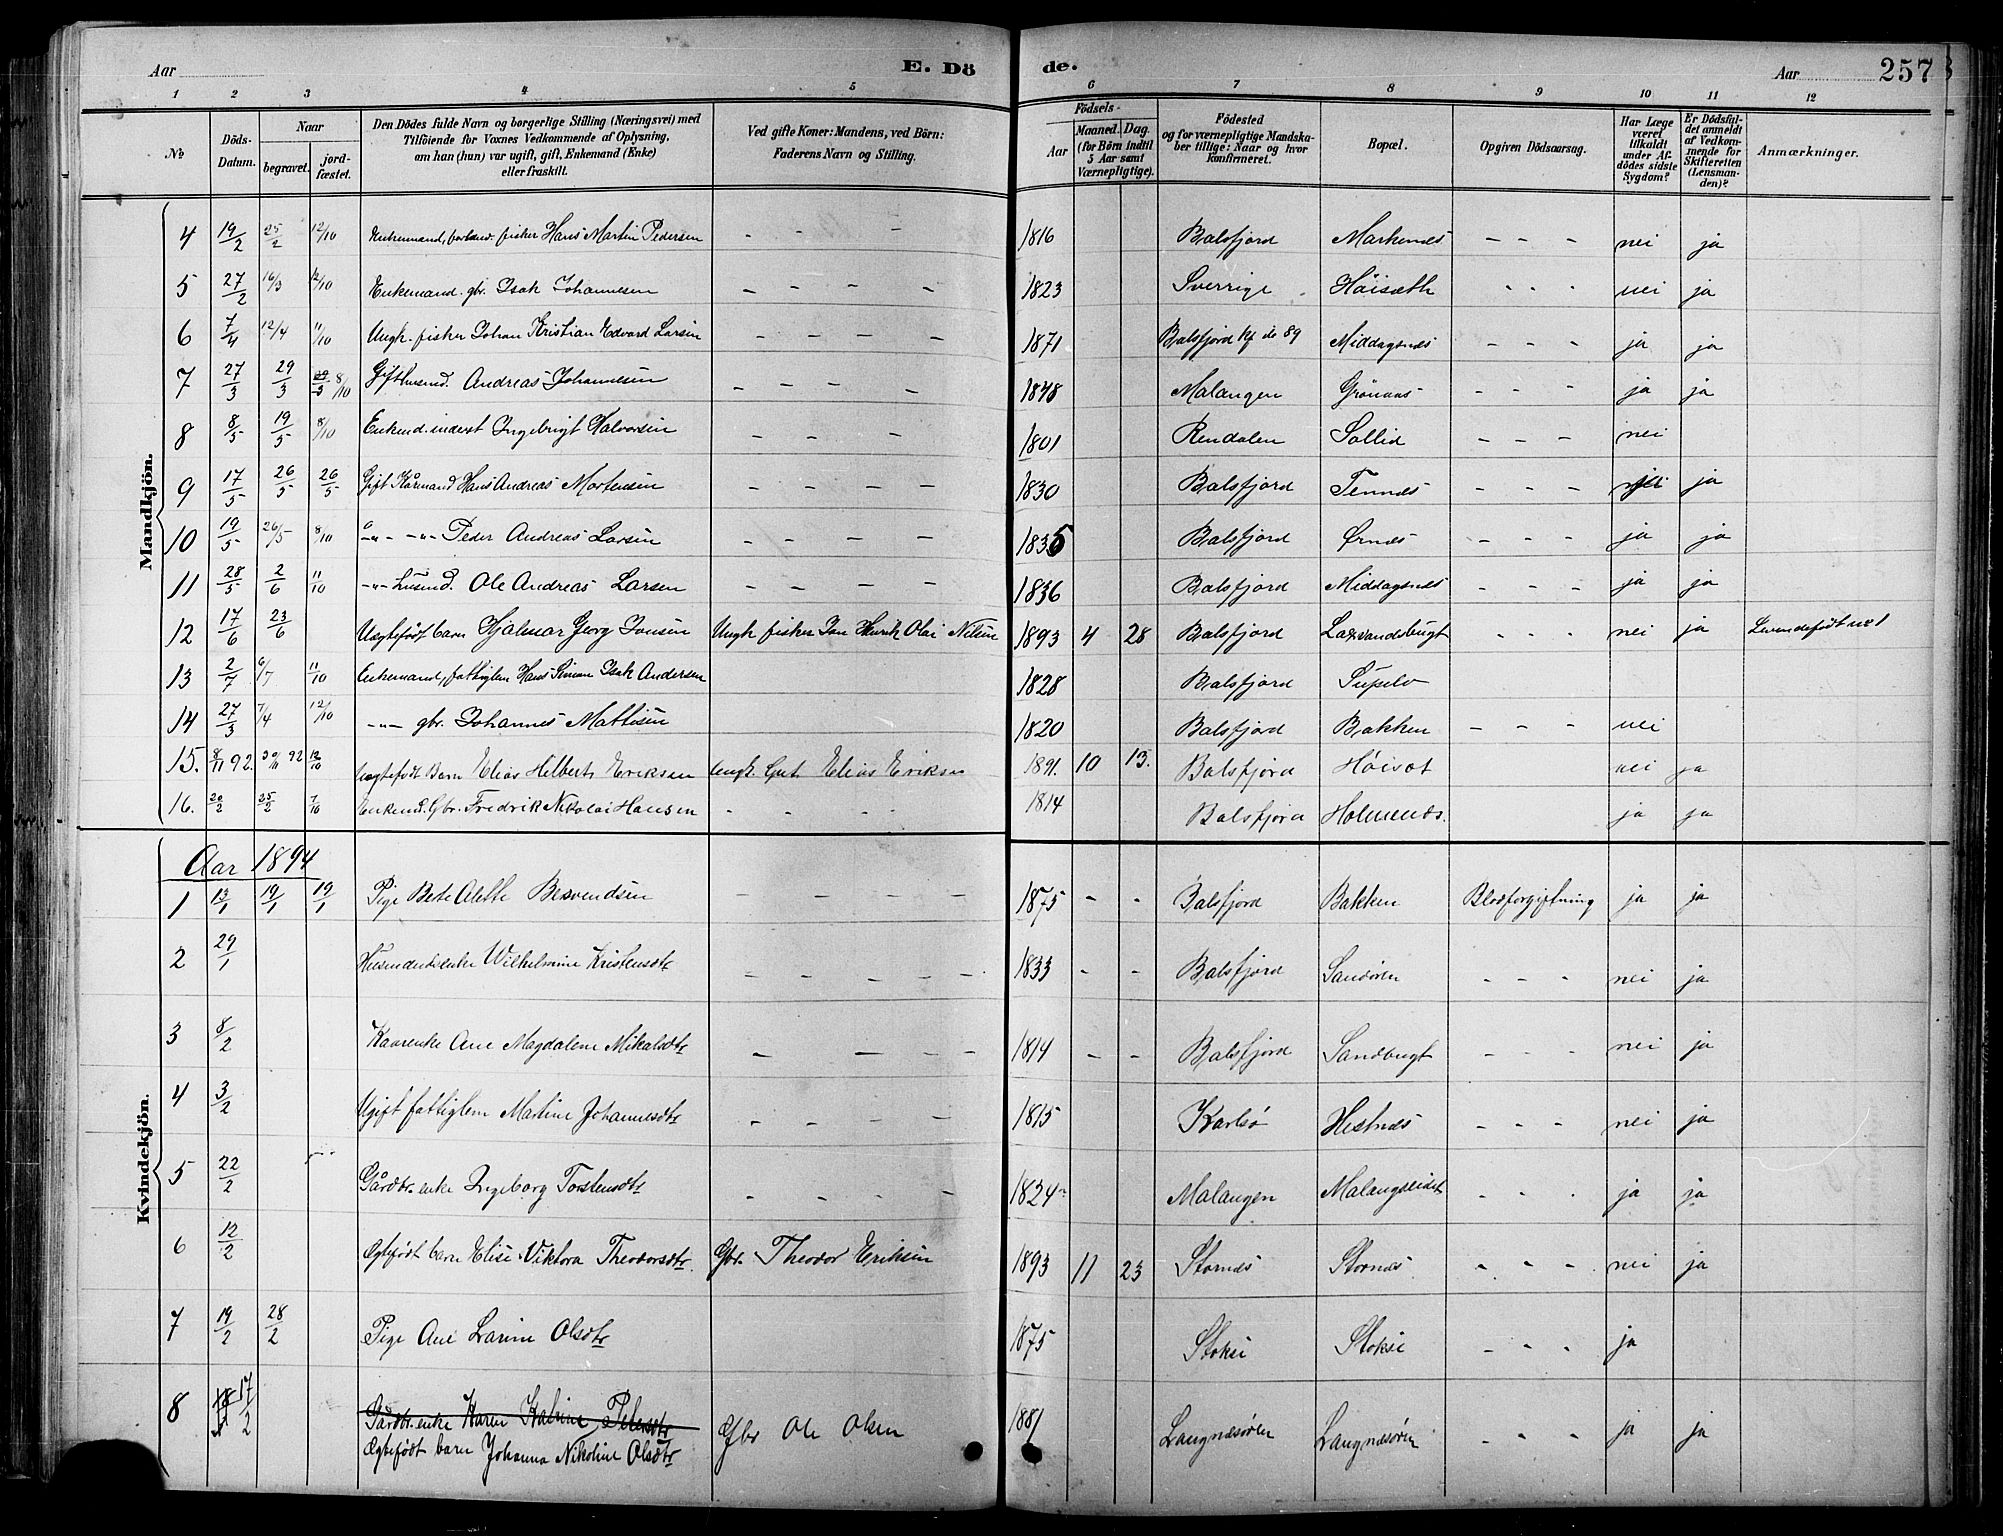 Aar
E. Dö de.
Aar
257
1 2 3 4 5 6 7 8 9 10 11 12
№ Döds-Datum. Naar begravet. jord-fæstet. Den Dödes fulde Navn og borgerlige Stilling (Næringsvei) med Tilföiende for Voxnes Vedkommende af Oplysning, om han (hun) var ugift, gift, Enkemand (Enke) eller fraskilt. Ved gifte Koner: Mandens, ved Börn: Faderens Navn og Stilling. Födsels- Aar Maaned. Dag. (for Börn indtil 5 Aar samt Værnepligtige). Födested og for værnepligtige Mandska-ber tillige: Naar og hvor konfirmeret. Bopæl. Opgiven Dödsaarsag. Har Læge været tilkaldt under Af-dödes sidste Sygdom? Er Dödsfal-det anmeldt af Vedkom-mende for Skifteretten (Lensman-den)? Anmærkninger.
Mandkjön.
4 19/2 25/2 12/10 Enkemand, forhend. fisker Hans Martin Pedersen - - - 1816 Balsfjord Markenæs - - - nei ja
5 27/2 16/3 12/10 Enkemand. gbr. Isak Johannesen - - - - 1823 Sverrige Höisæth - - - nei ja
6 7/4 12/4 11/10 Ungk. fisker Johan Kristian Edvard Larsen - - - - 1871 Balsfjord kf do 89 Middagsnæs - - - ja ja
7 27/3 29/3 29/3 8/10 Gift husmd. Andreas Johannesen - - - - 1848 Malangen Grönaas - - - ja ja
8 8/5 19/5 8/10 Enkemd. inderst Ingebrigt Halvorsen - - - - 1801 Rendalen Sollid - - - nei
9 17/5 26/5 26/5 Gift Kårmand Hans Andreas Mortensen - - - - 1830 Balsfjord Tennæs - - - nei ja
10 19/5 26/5 8/10 -"- -"- Peder Andreas Larsen - - - - 1835 Balsfjord Ørnæs - - - ja ja
11 28/5 2/6 11/10 -"- husmd. Ole Andreas Larsen - - - - 1836 Balsfjord Middagsnæs - - - ja ja
12 17/6 23/6 Uægtefödt barn Hjalmar Georg Jensen Ungk fisker Jan Henrik Olai Nilsen 1893 4 28 Balsfjord Laxvandsbugt - - - nei ja Levendefödt no 1
13 2/7 6/7 11/10 Enkemand, fattiglem Hans Simon Isak Andersen 1828 Balsfjord
14 27/3 7/4 12/10 -"- gbr. Johannes Mathisen 1820 Balsfjord Bakken - - - nei
15. 8/11 92. 30/11 92 12/10 Uægtefödt Barn Elias Helbert Eriksen Ungk. Gut Elias Eriksen 1891. 10 13. Balsfjord Höisæt nei ja
16. 20/2 25/2 7/10 Enkemd. Gbr. Fredrik Nikolai Hansen - - - - 1814 Balsfjord Holmenæs. ja ja
Aar 1894
Kvindekjön.
1 13/1 19/1 19/1 Pige Berte Alette Berntsen - - - - 1875 - - Balsfjord Bakken Blodforgiftning ja ja
2 29/1 Husmandsenke Wilhelmine Kristensdtr - - - - 1833 - - Balsfjord Sandören - - - nei ja
3 8/2 Kaarenke Ane Magdalene Mikalsdtr - - - - 1814 - - Balsfjord Sandbugt - - - nei ja
4 3/2 Ugift fattiglem Martine Johannesdtr - - - - 1815 Karlsö Hestnæs - - - nei ja
5 22/2 Gårdbr. enke Ingeborg Torstensdtr - - - - 1824 Malangen Malangseidet - - - ja ja
6 12/2 Ægtefödt barn Elise Viktora Theodorsdtr. Gbr. Theodor Eriksen 1893 11 23 Stornæs Stornæs. - - - nei ja
7 19/2 28/2 Pige Ane Larine Olsdtr 1875 Stokse Stokse - - - ja
8 17/2 Gårdbr. enke Karen Katrine Pedersdtr
Ægtefödt barn Johanna Nikoline Olsdtr Gbr Ole Olsen 1881 Langnæsören Langnæsören - - - ja ja